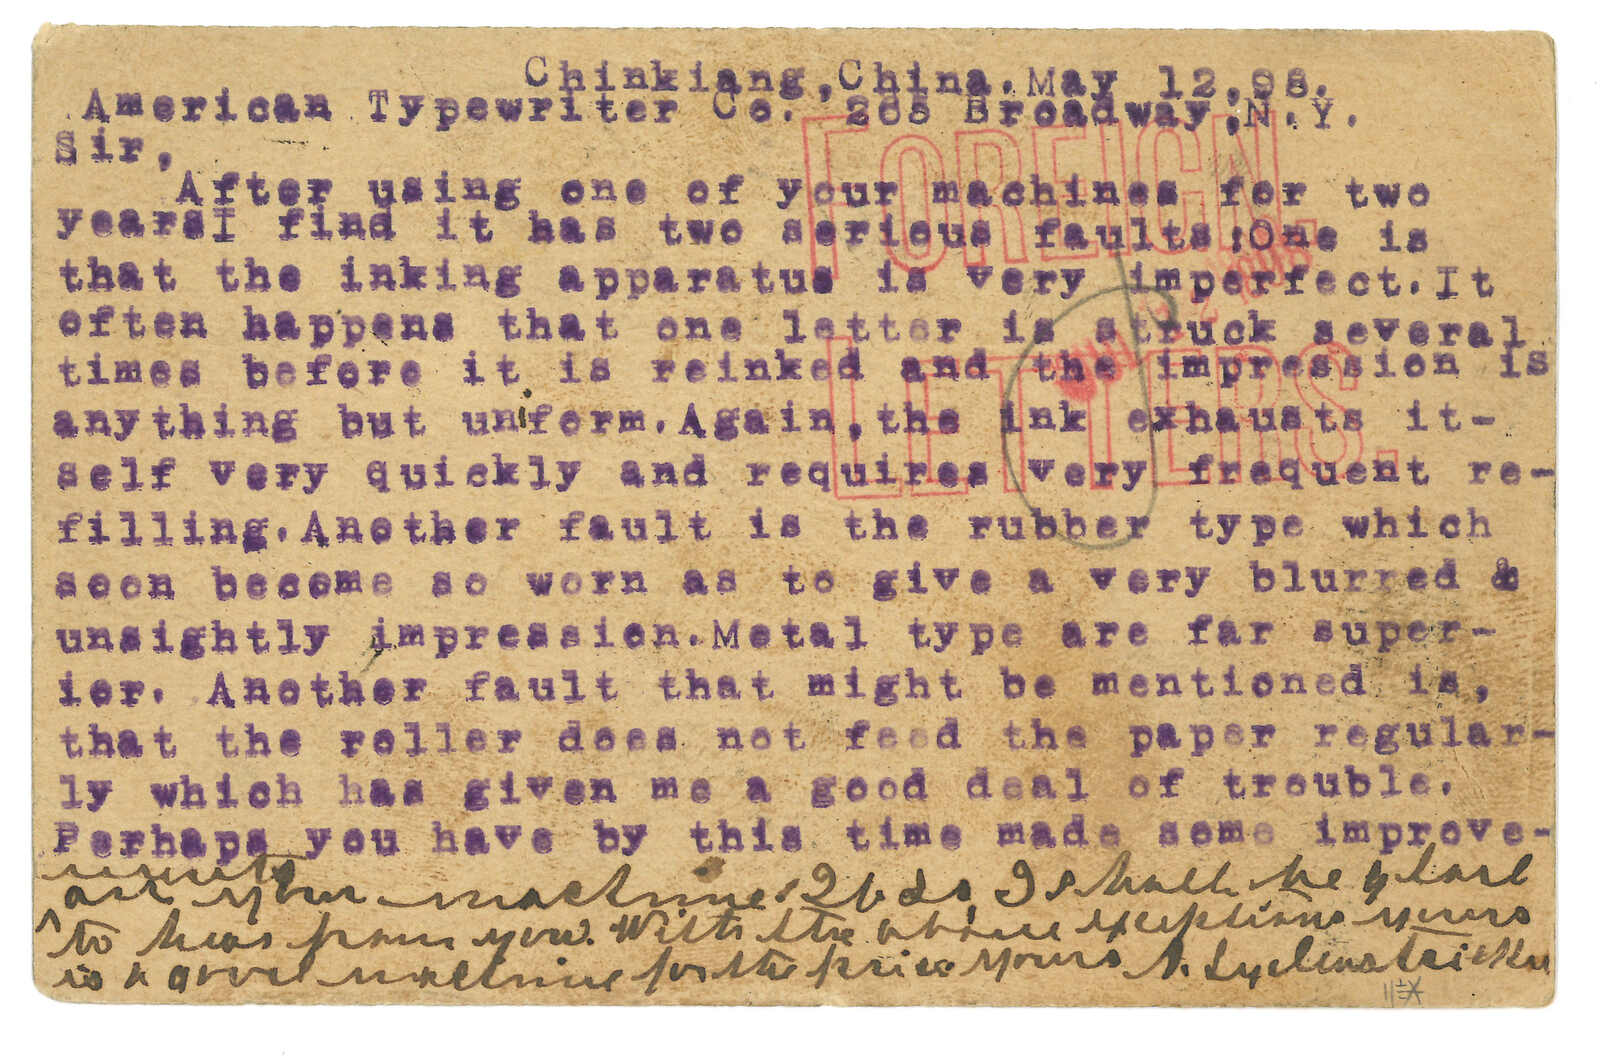 Chinkiang, China. May 12, 98.
American Typewriter Co. 265 Broadway, N.Y.
Sir,
After using one of your machines for two
yearsI find it has two serious faults;One is
that the inking apparatus is very imperfect.It
often happens that one letter is struck several
times before it is reinked and the impression is
anything but uniform.Again,the ink exhausts it-
self very quickly and requires very frequent re-
filling.Another fault is the rubber type which
soon become so worn as to give a very blurred &
unsightly impression.Metal type are far super-
ior. Another fault that might be mentioned is,
that the roller does not feed the paper regular-
ly which has given me a good deal of trouble.
Perhaps you have by this time made some improve-
ments
on your machine. If so, I shall be glad
to hear from you. With the above exceptions yours
is a good machine for the price Yours
FOREIGN.
LETTERS.